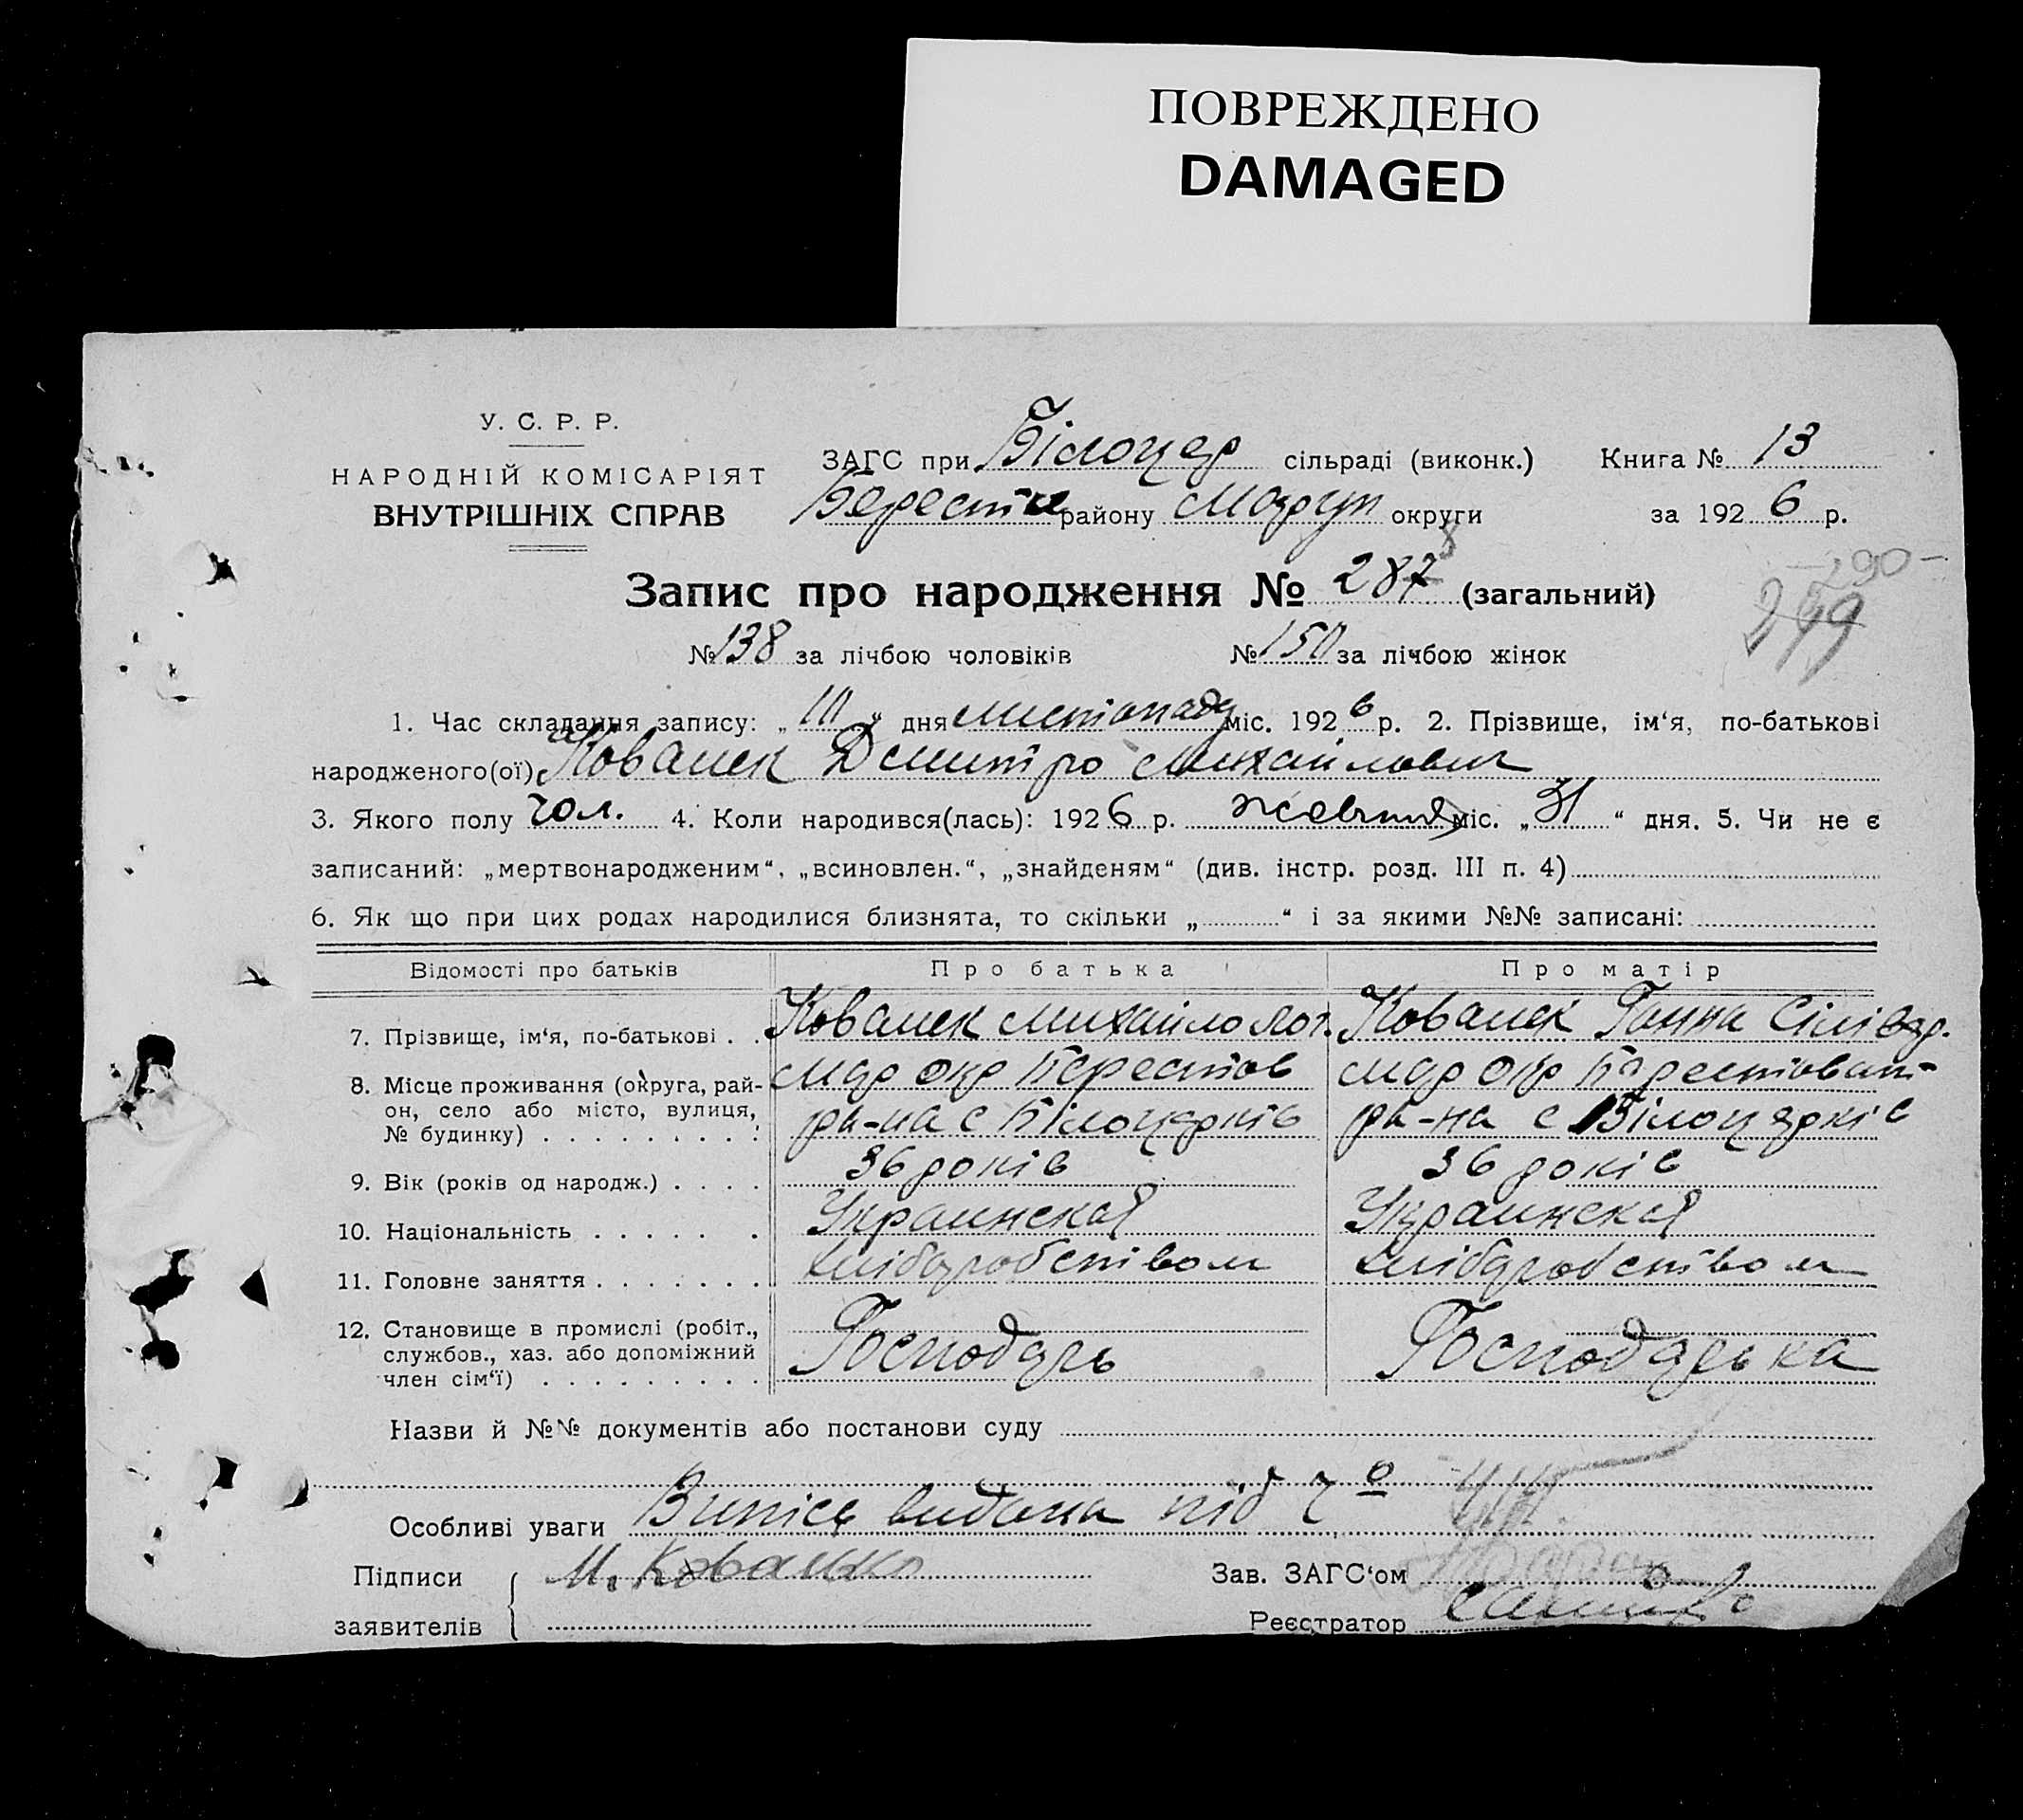 ПОВРЕЖДЕНО
DAMAGED
У. С. Р. Р.
НАРОДНІЙ КОМІСАРІЯТ
ВНУТРІШНІХ СПРАВ
ЗАГС при Білоцер сільраді (виконк.) Книга № 13
Берестів району МарІуп округи за 1926 р.
Запис про народження № 287 (загальний)
8
290
299
№ 138 за лічбою чоловіків № 150 за лічбою жінок
1. Час складання запису: „10“ дня листіопада міс. 1926 р. 2. Прізвище, ім‘я, по-батькові
народженого(ої) Ковалек Дмитро Михайлович
3. Якого полу чол. 4. Коли народився(лась): 1926 р. жовтня міс. „31“ дня. 5. Чи не є
записаний: „мертвонародженим“, „всиновлен.“, „знайденям“ (див. інстр. розд. III п. 4)
6. Як що при цих родах народилися близнята, то скільки „ “ і за якими №№ записані:
Відомості про батьків Про батька Про матір
7. Прізвище, ім‘я, по-батькові . . Ковалек Михайло Ковалек Ганна
8. Місце проживання (округа, рай-он, село або місто, вулиця, № будинку) Мар окр Берестов ра-на с Білоцерків Мар окр Берестоват- ра-на с Білоцерків
9. Вік (років од народж.) . . . . 36 років 36 років
10. Національність . . . . . . Украинская Украинская
11. Головне заняття . . . . . . . хліборобством хліборобством
12. Становище в промислі (робіт., службов., хаз. або допоміжний член сім‘ї) Господарь Господарька
Назви й №№ документів або постанови суду
Особливі уваги Випісь видана під
Підписи М. Ковалько Зав. ЗАГС‘ом
заявителів Реєстратор